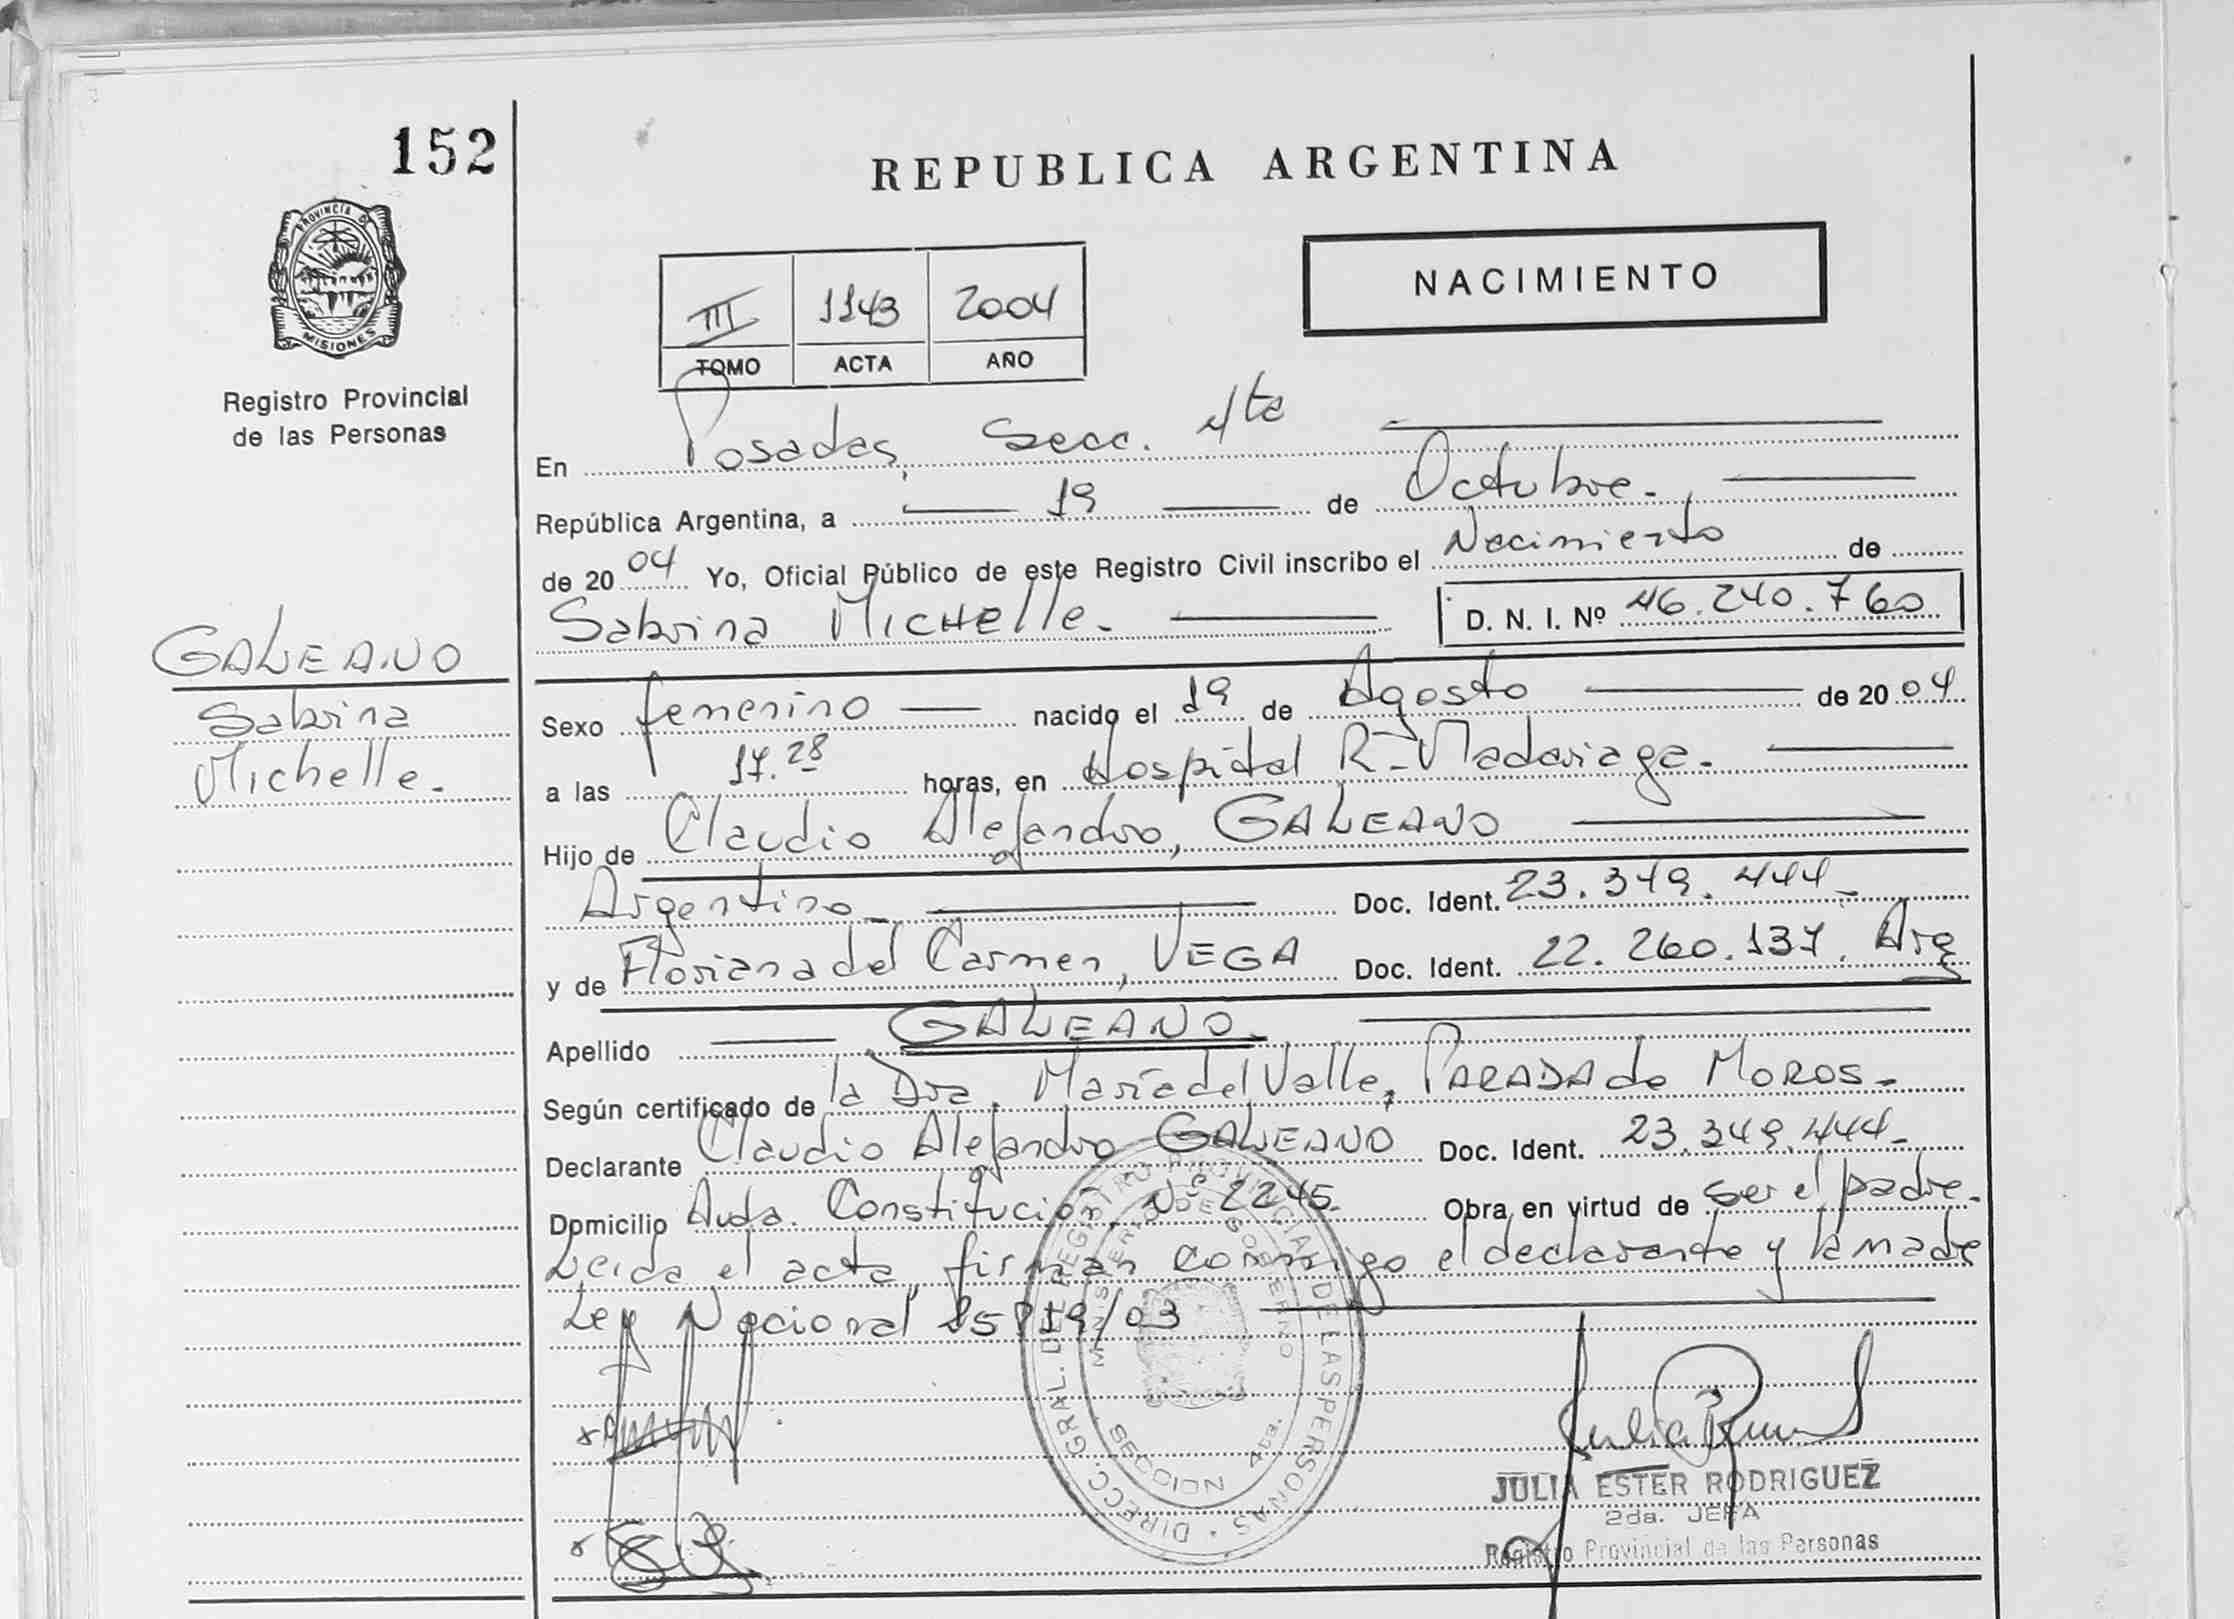 152
REPUBLICA ARGENTINA
PROVINCIA DE
MISIONES
Registro Provincial
de las Personas
NACIMIENTO
III 1143 2004
TOMO ACTA AÑO
En Posadas, Secc. 4ta
República Argentina, a 19 de Octubre.
de 2004 Yo, Oficial Público de este Registro Civil inscribo el Nacimiento de
Sabrina Michelle. D. N. I. Nº 46.240.760
GALEANO
Sabrina
Michelle.
Sexo femenino nacido el 19 de Agosto de 2004
a las 17.28 horas, en Hospital R. Madariaga.
Hijo de Claudio Alejandro, GALEANO
Argentino Doc. Ident. 23.349.444
y de Floriana del Carmen, VEGA Doc. Ident. 22.260.137. Arg
Apellido GALEANO
Según certificado de la Dra. María del Valle, PARADA de MOROS.
Declarante Claudio Alejandro GALEANO Doc. Ident. 23.349.444
Domicilio Avda. Constitución Nº 2245. Obra en virtud de ser el padre.
Leida el acta, firman conmigo el declarante y la madre
Ley Nacional 25819/03
DIRECC. GRAL. DEL REGISTRO PROVINCIAL DE LAS PERSONAS
MINISTERIO DE GOBIERNO
SECCION 4ta.
JULIA ESTER RODRIGUEZ
2da. JEFA
Registro Provincial de las Personas